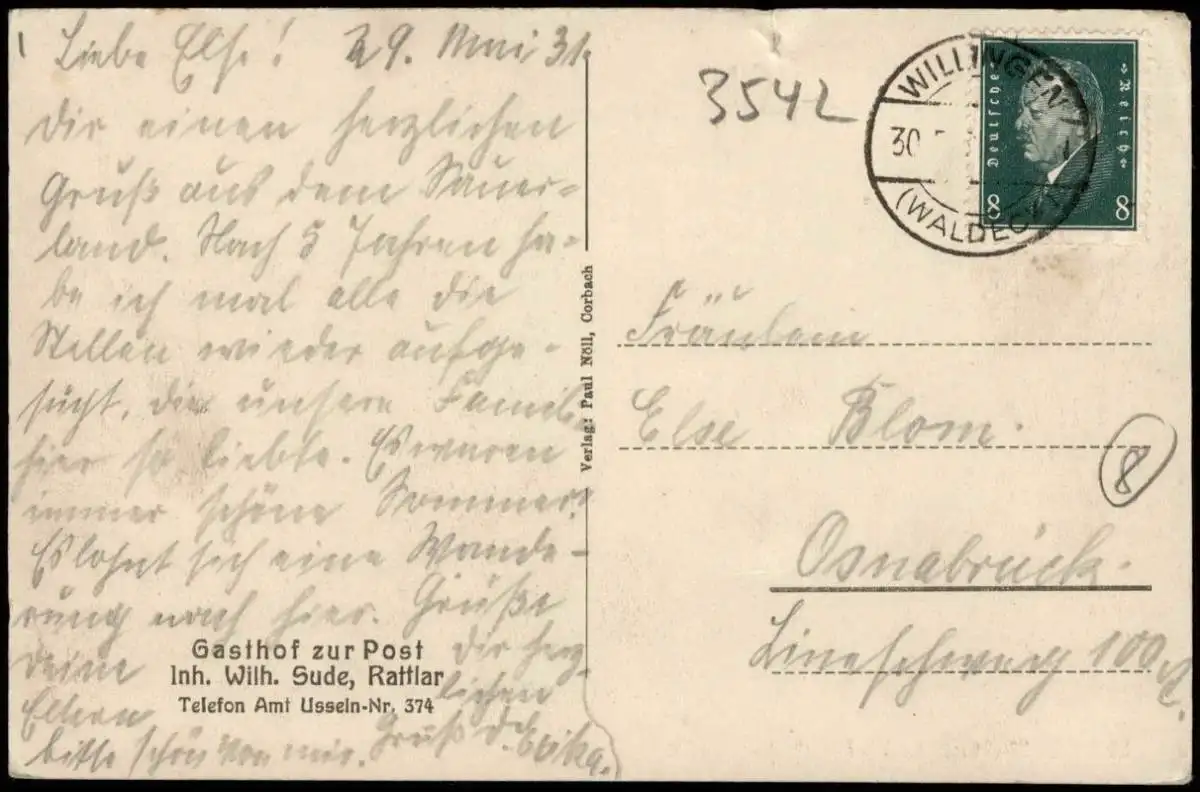 Liebe Else! 29. Mai 31.
Dir einen herzlichen
Gruß aus dem Sauer-
land. Nach 5 Jahren ha-
be ich mal alle die
Stellen wieder aufge-
sucht, die unsere Famil.
hier so liebte. Es waren
immer schöne Sommer!
Es lohnt sich eine Wande-
rung nach hier. Grüße
Deine
Eltern
bitte schön von mir.
Dir herz-
lichen
Gruß d. Erika.
Gasthof zur Post
Inh. Wilh. Sude, Rattlar
Telefon Amt Usseln-Nr. 374
Verlag: Paul Nöll, Corbach
3542
WILLINGEN
30
(WALDECK)
Deutsches Reich
8 8
Fräulein
Else Blom.
8
Osnabrück.
100